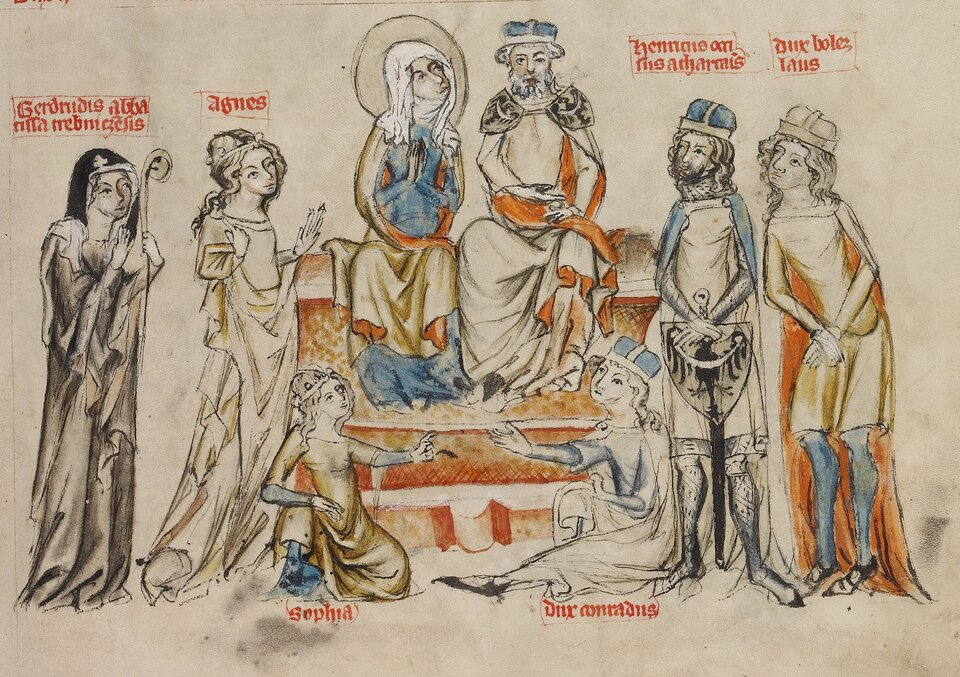 Gerdrudis abba
tissa trebnicensis
agnes
Henricus occi
sus a thartaris
dux bolez
laus
Sophia
dux conradus